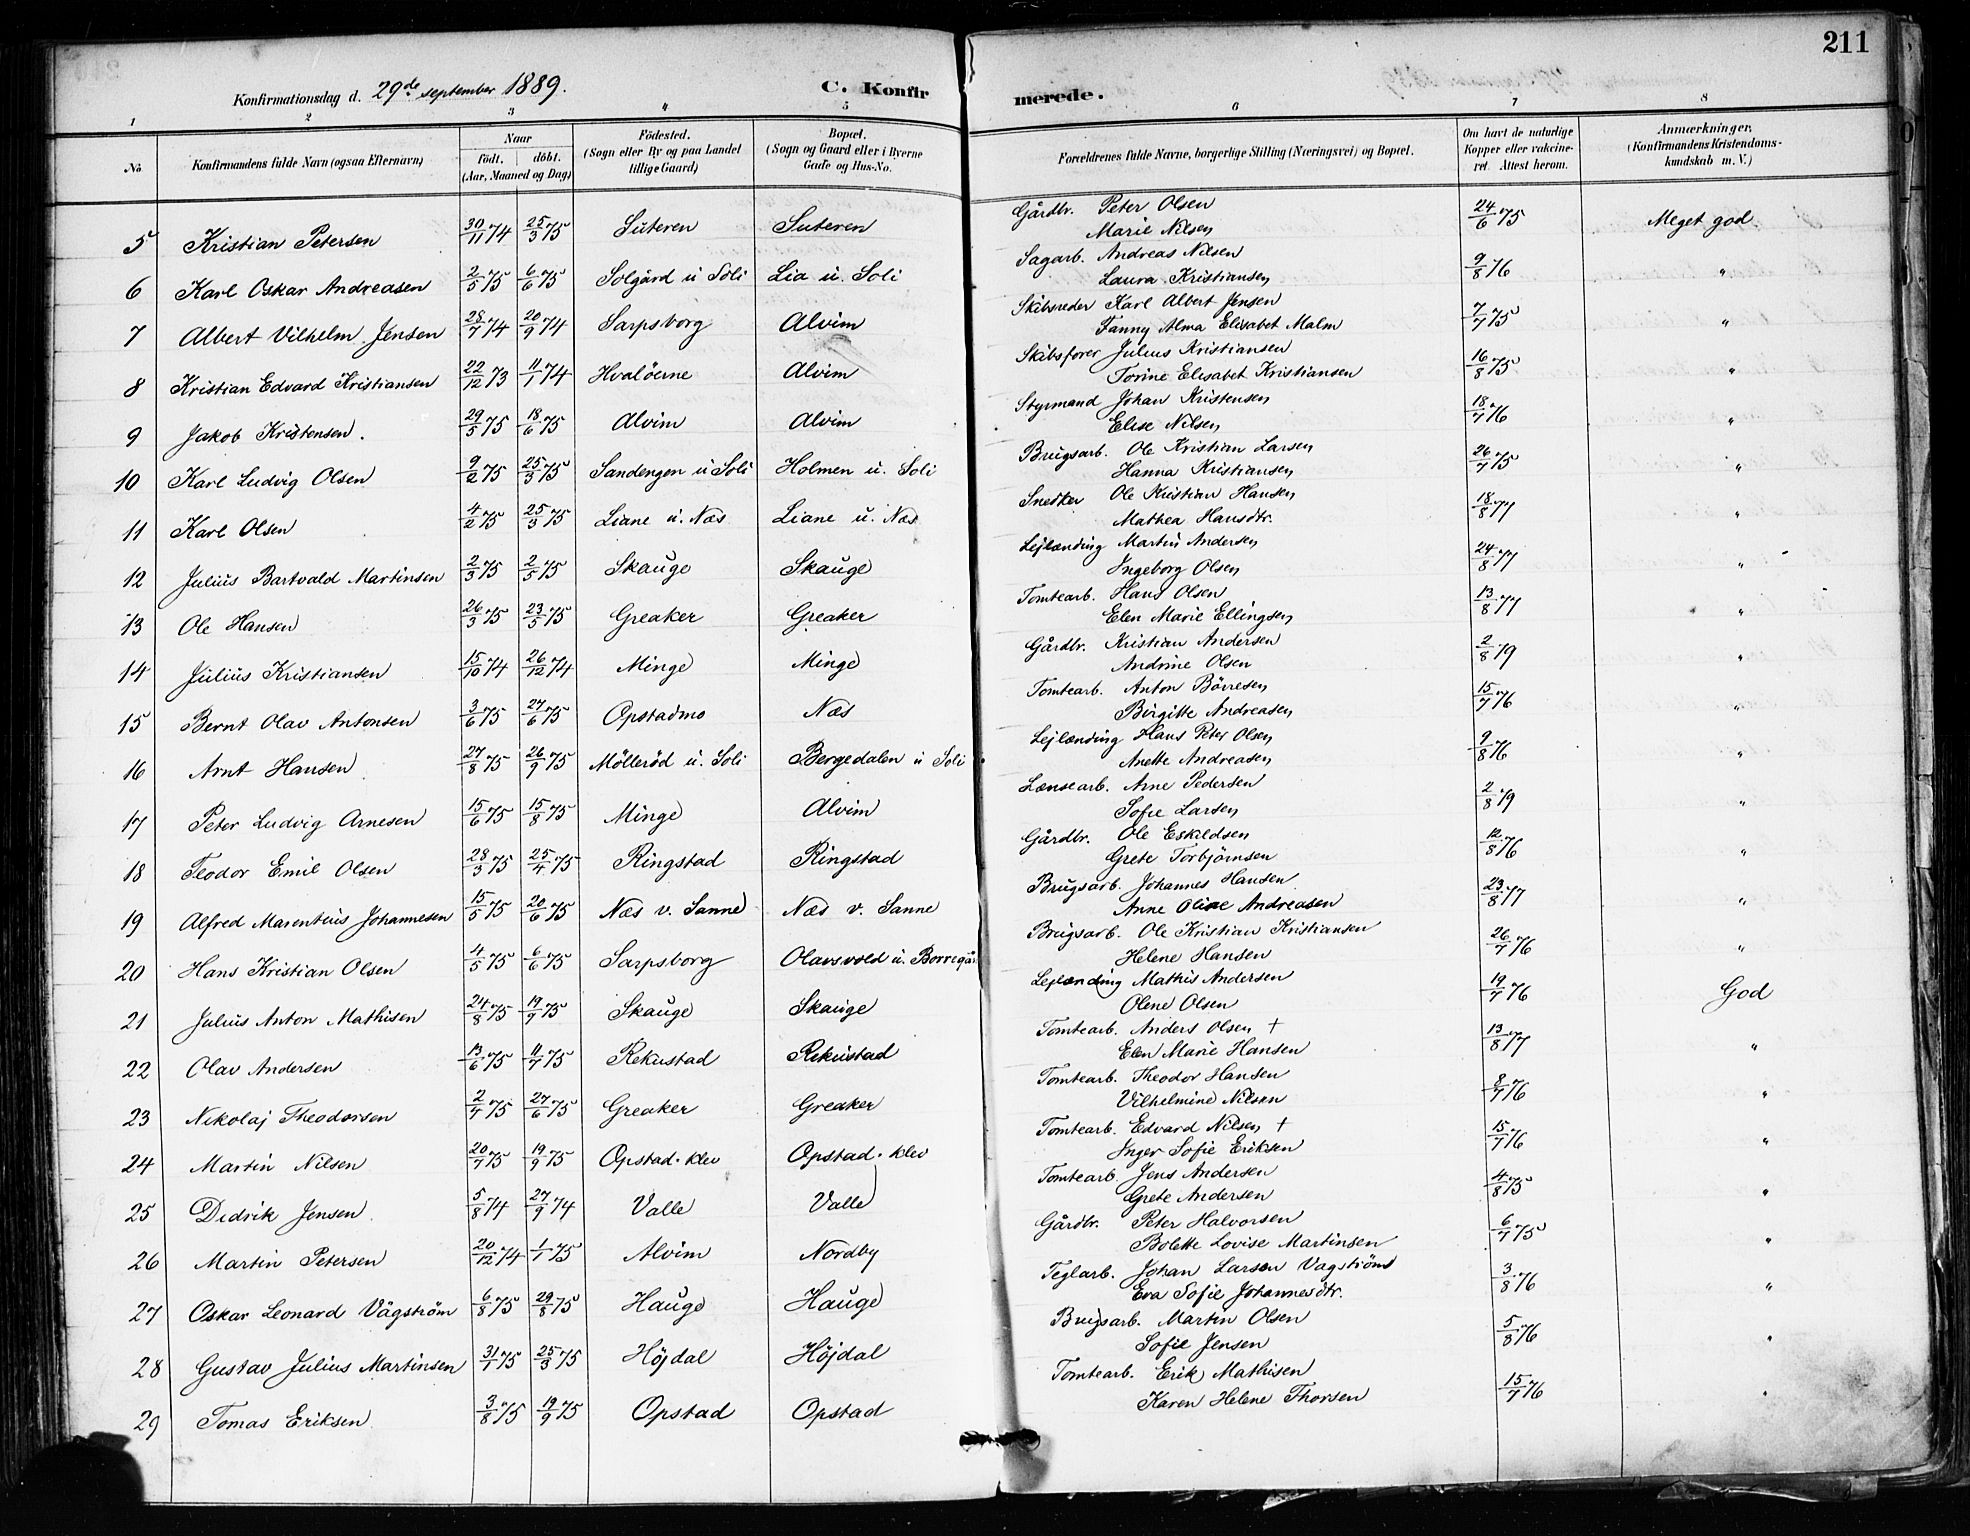 211
Konfirmationsdag d. 29de september 1889.
C. Konfirmerede.
1 2 3 4 5 6 7 8
No
Konfirmandens fulde Navn (ogsaa Efternavn)
Naar
födt. döbt.
(Aar, Maaned og Dag)
Födested.
(Sogn eller By og paa Landet
tillige Gaard)
Bopæl.
(Sogn og Gaard eller i Byerne
Gade og Hus-No.
Forældrenes fulde Navne, borgerlige Stilling (Næringsvei) og Bopæl.
Om havt de naturlige
Kopper eller vakcine-
ret. Attest herom.
Anmærkninger.
(Konfirmandens Kristendoms-
kundskab m. V.)
5 Kristian Petersen 30/11 74 25/3 75 Suteren Suteren Gårdbr. Peter Olsen 24/6 75 Meget god.
Marie Nilsen
6 Karl Oskar Andreasen 2/5 75 6/6 75 Solgård u Soli Lia u. Soli Sagarb. Andreas Nilsen 9/8 76 "
Laura Kristiansen
7 Albert Vilhelm Jensen 28/7 74 20/9 74 Sarpsborg Alvim Skibsreder Karl Albert Jensen 7/7 75 "
Fanny Alma Elisabet Malm
8 Kristian Edvard Kristiansen 22/12 73 11/1 74 Hvalöerne Alvim Skibsfører Julius Kristiansen 16/8 75 "
Torine Elisabet Kristiansen
9 Jakob Kristensen. 29/5 75 18/6 75 Alvim Alvim Styrmand Johan Kristensen 18/7 76 "
Elise Nilsen
10 Karl Ludvig Olsen 9/2 75 25/3 75 Sandengen u Soli Holmen u. Soli Brugsarb. Ole Kristian Larsen 26/7 75 "
Hanna Kristiansen
11 Karl Olsen 4/2 75 25/3 75 Liane u. Næs Liane u. Næs Snedker Ole Kristian Hansen 18/8 77 "
Mathea Hansdtr.
12 Julius Bartvald Martinsen 2/3 75 2/5 75 Skauge Skauge Lejlænding Martin Andersen 24/8 77 "
Ingeborg Olsen
13 Ole Hansen 26/3 75 23/5 75 Greaker Greaker Tomtearb. Hans Olsen 13/8 77 "
Elen Marie Ellingsen
14 Julius Kristiansen 15/10 74 26/12 74 Minge Minge Gårdbr. Kristian Andersen 2/8 79 "
Andrine Olsen
15 Bernt Olav Antonsen 3/6 75 27/6 75 Opstadmo Næs Tomtearb. Anton Börresen 15/7 76 "
Birgitte Andreasen
16 Arnt Hansen 27/8 75 26/9 75 Mölleröd u. Soli Bergedalen u Soli Lejlænding Hans Peter Olsen 9/8 76 "
Anette Andreasen
17 Peter Ludvig Arnesen 15/6 75 15/8 75 Minge Alvim Lænsearb. Arne Pedersen 2/8 79 "
Sofie Larsen
18 Teodor Emil Olsen 28/3 75 25/4 75 Ringstad Ringstad Gårdbr. Ole Eskildsen 12/8 76 "
Grete Torbjørnsen
19 Alfred Marentius Johannesen 15/5 75 20/6 75 Næs v. Sanne Næs v. Sanne Brugsarb. Johannes Hansen 23/8 77 "
Anne Oline Andreasen
20 Hans Kristian Olsen 4/5 75 6/6 75 Sarpsborg Olavsvold u. Borregår Brugsarb. Ole Kristian Kristiansen 26/7 76 "
Helene Hansen
21 Julius Anton Mathisen 24/8 75 19/9 75 Skauge Skauge Lejlænding Mathis Andersen 19/7 76 God
Olene Olsen
22 Olav Andersen 13/6 75 11/7 75 Rekustad Rekustad Tomtearb. Anders Olsen † 13/8 77 "
Elen Marie Hansen
23 Nikolaj Theodorsen 2/4 75 27/6 75 Greaker Greaker Tomtearb. Theodor Hansen 8/7 76 "
Vilhelmine Nilsen
24 Martin Nilsen 20/7 75 19/9 75 Opstad-klev Opstad-klev Tomtearb. Edvard Nilsen † 15/7 76 "
Inger Sofie Eriksen
25 Didrik Jensen 5/8 74 27/9 74 Valle Valle Tomtearb. Jens Andersen 4/8 75 "
Grete Andersen
26 Martin Petersen 20/12 74 1/1 75 Alvim Nordby Gårdbr. Peter Halvorsen 6/7 75 "
Bolette Lovise Martinsen
27 Oskar Leonard Vågström 6/8 75 29/8 75 Hauge Hauge Teglarb. Johan Larsen Vagström 3/8 76 "
Eva Sofie Johannesdtr.
28 Gustav Julius Martinsen 31/1 75 25/3 75 Höjdal Höjdal Brugsarb. Martin Olsen 5/8 76 "
Sofie Jensen
29 Tomas Eriksen 3/8 75 19/9 75 Opstad Opstad Tomtearb. Erik Mathisen 15/7 76 "
Karen Helene Thorsen